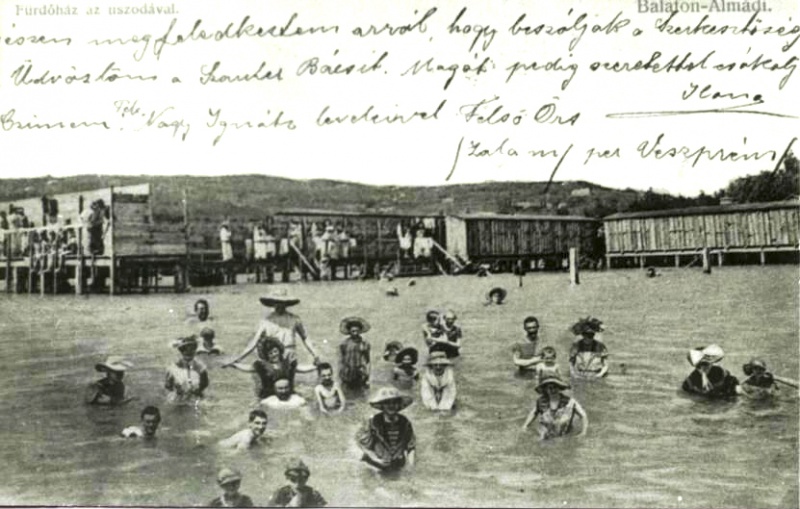 Fürdőház az uszodával.
Balaton-Almádi.
észen megfeledkeztem arról, hogy beszóljak a szerkesztőség
Üdvözlöm a Szauter Bácsit. Magát pedig szeretettel csókolj
Ilona
Czimem Nagy Ignátz levelével Felső Örs
/Zala m/ per Veszprém/